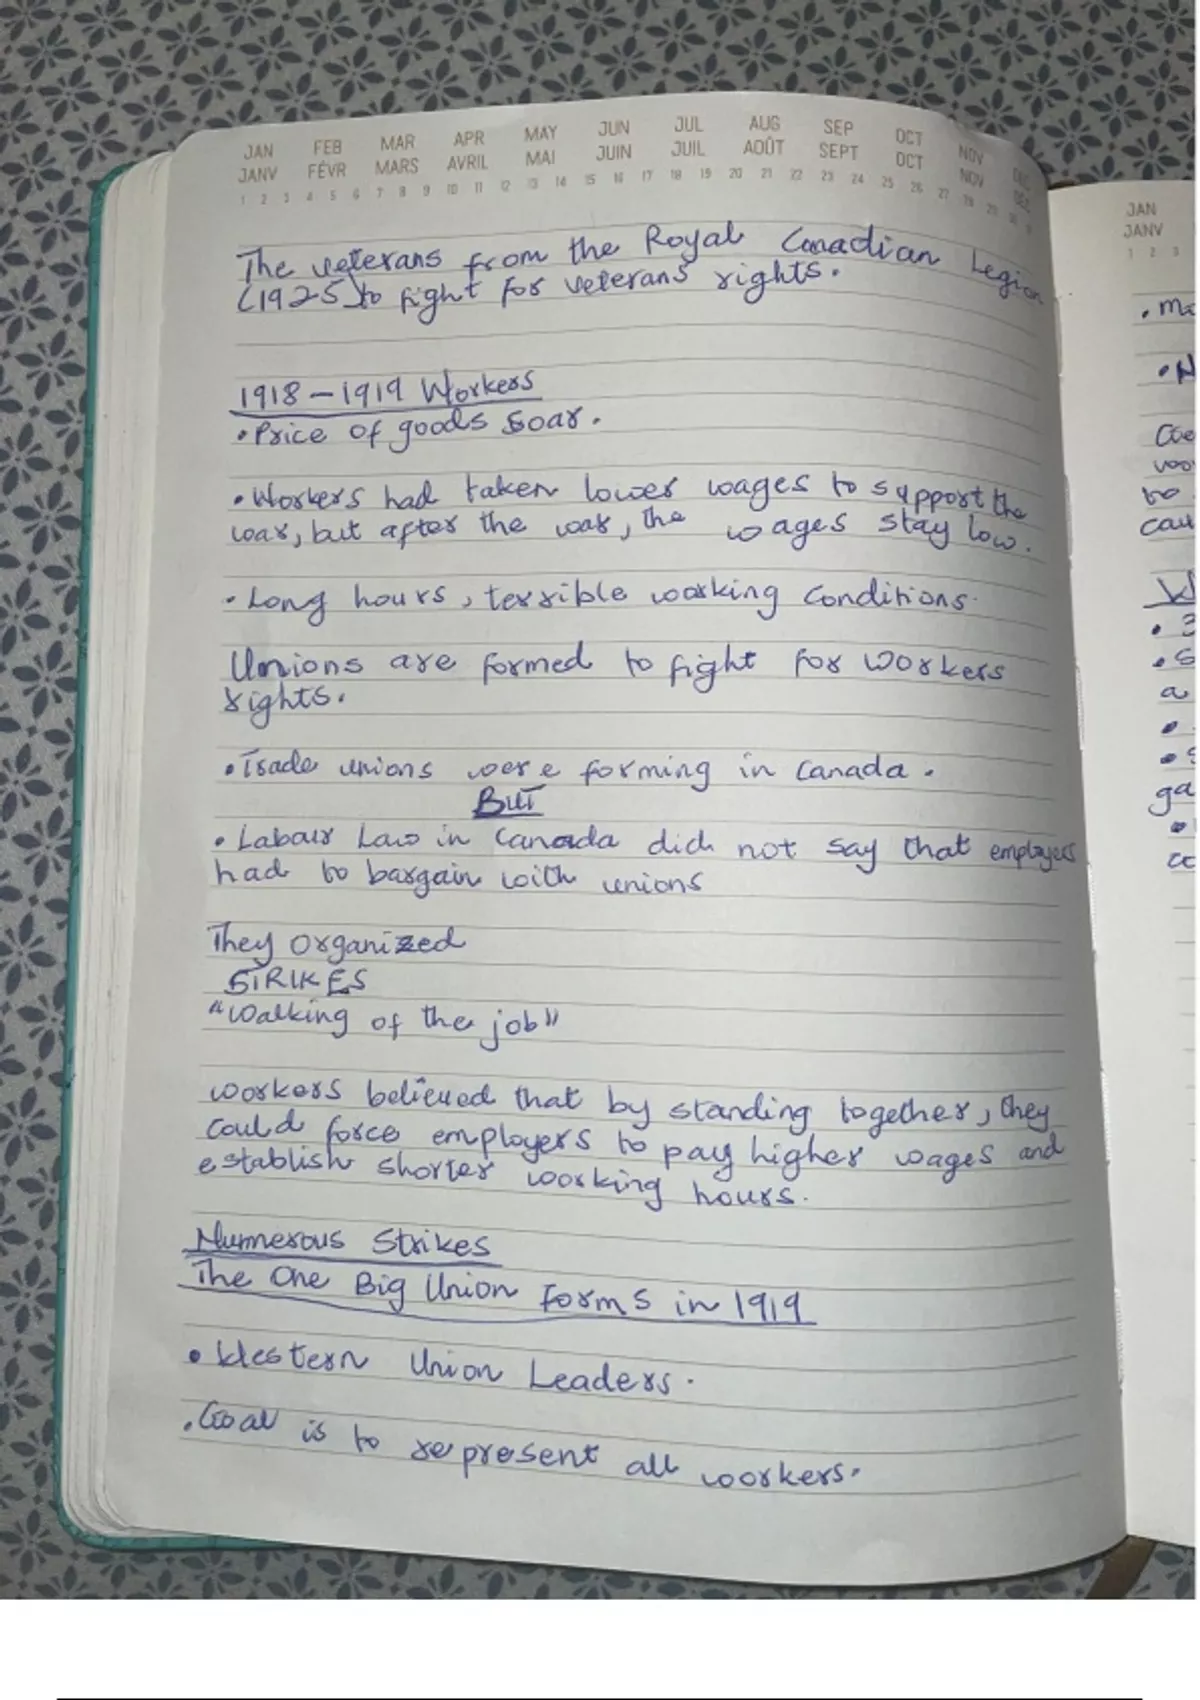 JAN FEB MAR APR MAY JUN JUL AUG SEP OCT NOV DEC
JANV FÉVR MARS AVRIL MAI JUIN JUIL AOÛT SEPT OCT NOV DÉC
1 2 3 4 5 6 7 8 9 10 11 12 13 14 15 16 17 18 19 20 21 22 23 24 25 26 27 28 29 30 31
The veterans from the Royal Canadian Legion
(1925) to fight for veterans rights.
1918 – 1919 Workers
• Price of goods soar.
• Workers had taken lower wages to support the
war, but after the war, the wages stay low.
• Long hours, terrible working conditions.
Unions are formed to fight for workers
rights.
• Trade unions were forming in Canada.
BUT
• Labour Law in Canada did not say that employers
had to bargain with unions
They organized
STRIKES
"Walking of the job"
workers believed that by standing together, they
could force employers to pay higher wages and
establish shorter working hours.
Numerous Strikes
The One Big Union Forms in 1919
• Western Union Leaders.
• Goal is to represent all workers.
JAN
JANV
1 2 3